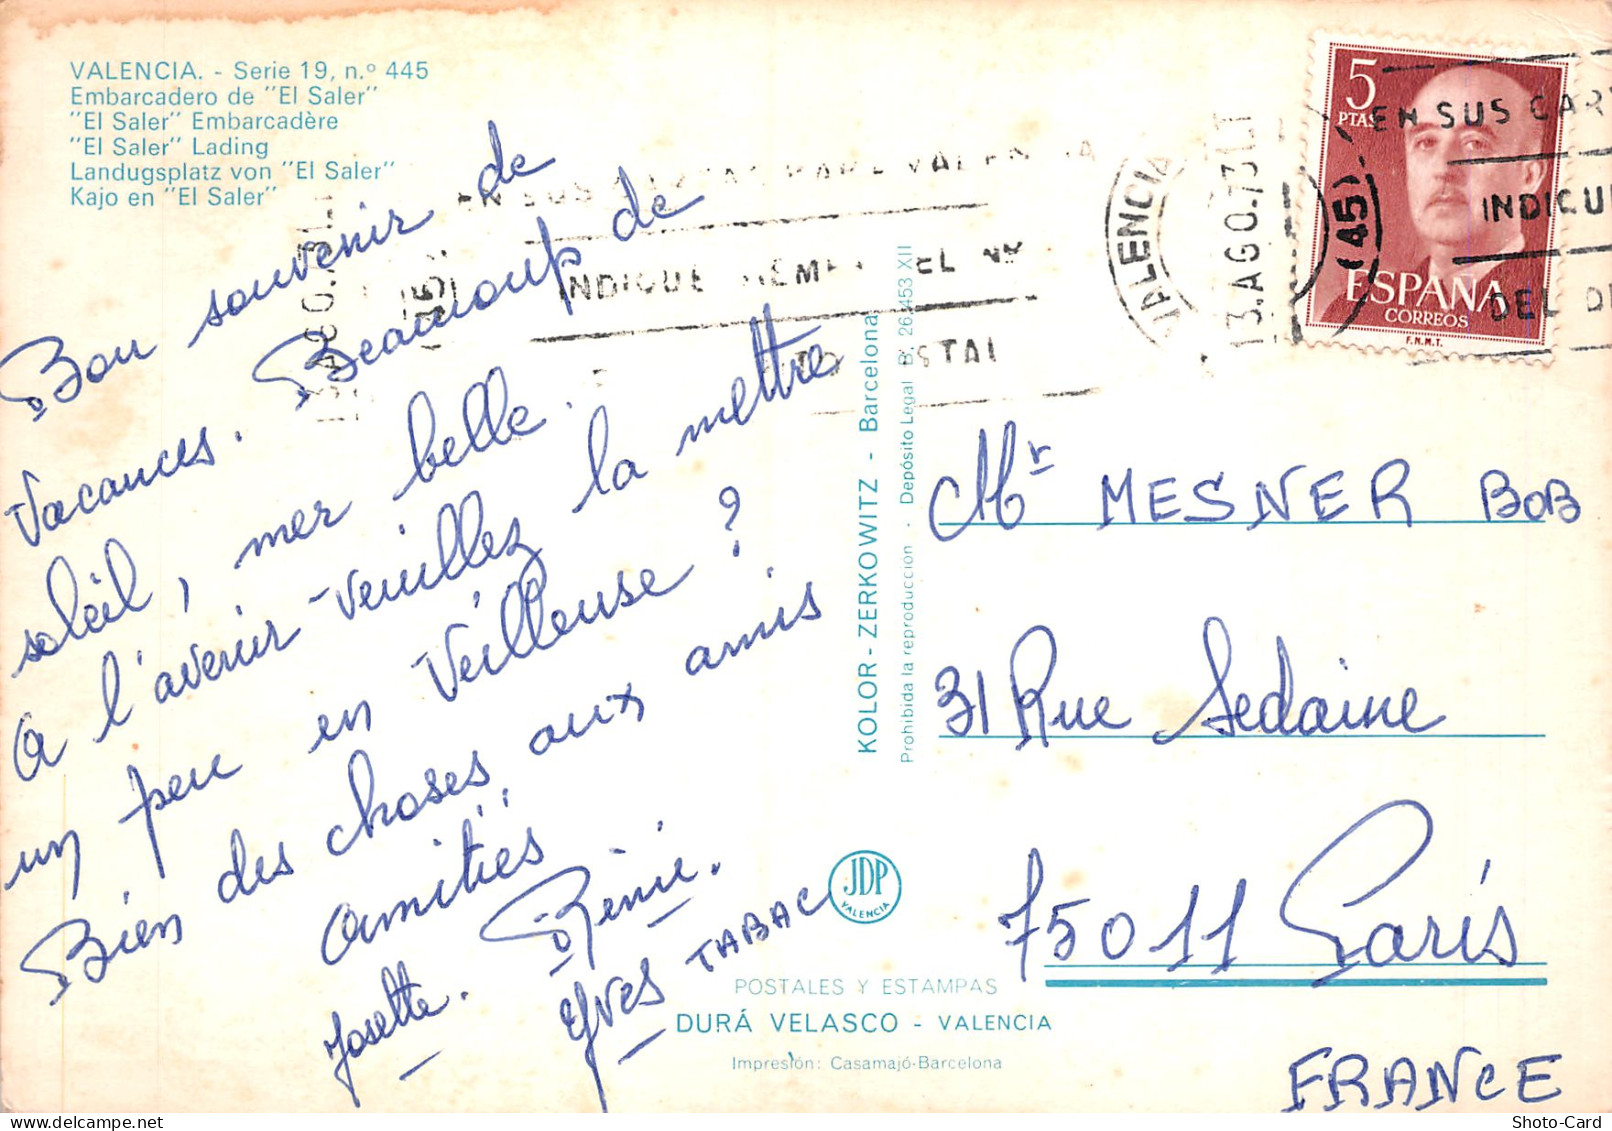 VALENCIA. - Serie 19, n.º 445
Embarcadero de "El Saler"
"El Saler" Embarcadère
"El Saler" Lading
Landugsplatz von "El Saler"
Kajo en "El Saler"
Bon souvenir de
Vacances. Beaucoup de
soleil, mer belle.
A l'avenir - veuillez la mettre
un peu en Veilleuse ?
Bien des choses aux amis
Amitiés
Josette. Rénie.
Yves TABAC
KOLOR - ZERKOWITZ - Barcelona
Prohibida la reproducción - Depósito Legal B. 26.453 XII
JDP
VALENCIA
POSTALES Y ESTAMPAS
DURÁ VELASCO - VALENCIA
Impresión: Casamajó-Barcelona
5
PTAS
ESPAÑA
CORREOS
F.N.M.T.
VALENCIA
13.AGO.73
(45)
EN SUS CARTAS PARA VALENCIA
INDIQUE SIEMPRE EL
POSTAL
EN SUS CAR
INDIQU
DEL DI
Mr MESNER BOB
31 Rue Sedaine
75011 Paris
FRANCE
Shoto-Card